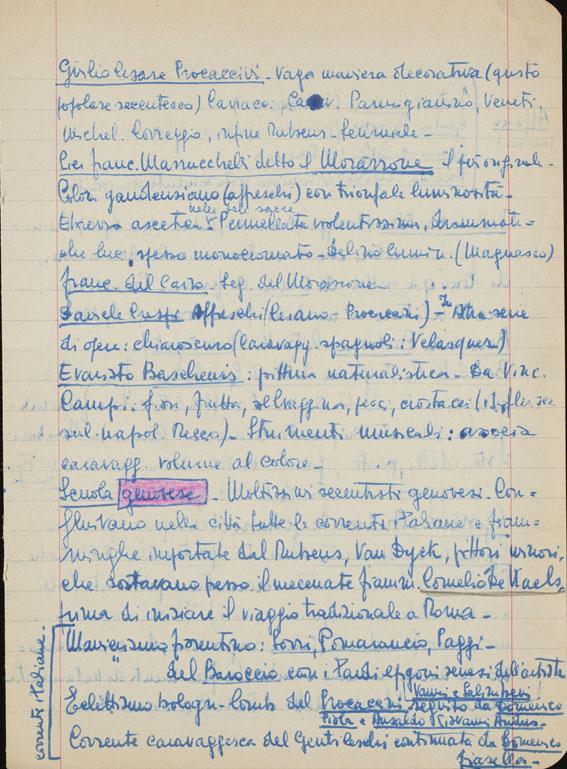 Giulio Cesare Procaccini - Vaga maniera decorativa (gusto
popolare secentesco) Carracc. Parmigianino, Veneti,
Michel. Correggio, infine Rubens - Sensuale -
Pier franc. Mazzucchelli detto il Morazzone il più originale -
Colori gaudenziano (affreschi) con trionfale luminosità -
Ebrezza ascetica nelle pale sacre Pennellata violentissima, drammati=
che luci, spesso monocromato - Delirio lumin. (Magnasco)
franc. del Cairo - Seg. del Morazzone
Daniele Crespi Affreschi (Cerano - Procaccini) - In altra serie
di opere: chiaroscuro (caravagg. spagnoli: Velasquez)
Evaristo Baschenis: pittura naturalistica - Da Vinc.
Campi: fiori, frutta, selvaggina, pesci, crostacei
sul napol. Recco) - Strumenti musicali: associa
caravagg. volume al colore -
Scuola genovese - Moltissimi secentisti genovesi. Con=
fluivano nella città tutte le correnti italiane e fiam=
minghe importate dal Rubens, Van Dyck, pittori minori,
che sostavano presso il mecenate fiamm. Cornelio De Waels,
prima di iniziare il viaggio tradizionale a Roma -
correnti italiane
Manierismo fiorentino: Sorri, Pomarancio, Paggi -
" del Baroccio con i tardi epigoni senesi dell'artista
Vanni e Salimbeni
Eclettismo bologn-lomb. del Procaccini seguito da Domenico
Piola e Ansaldo Giovanni Andrea -
Corrente caravaggesca del Gentileschi continuata da Domenico
Fiasella -